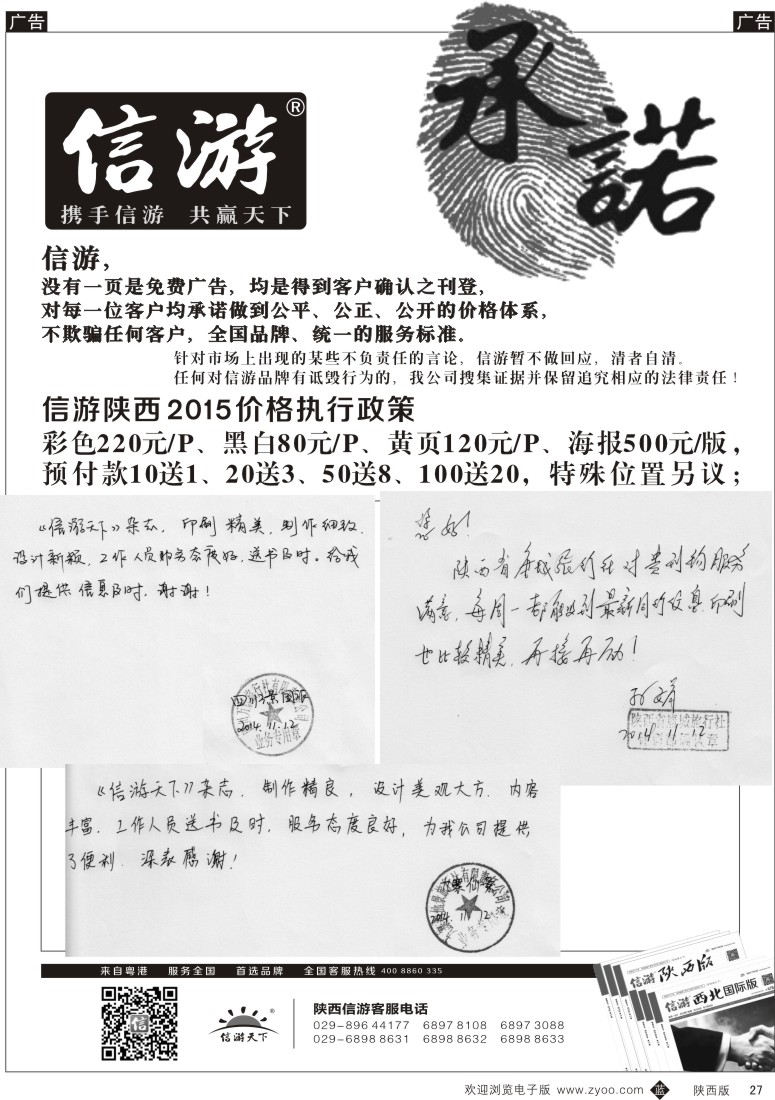 广告
广告
承諾
信游®
携手信游 共赢天下
信游，
没有一页是免费广告，均是得到客户确认之刊登，
对每一位客户均承诺做到公平、公正、公开的价格体系，
不欺骗任何客户，全国品牌、统一的服务标准。
针对市场上出现的某些不负责任的言论，信游暂不做回应，清者自清。
任何对信游品牌有诋毁行为的，我公司搜集证据并保留追究相应的法律责任！
信游陕西2015价格执行政策
彩色220元/P、黑白80元/P、黄页120元/P、海报500元/版，
预付款10送1、20送3、50送8、100送20，特殊位置另议；
《信游天下》杂志，印刷精美，制作细致，
设计新颖，工作人员服务态度好，送书及时。给我
们提供信息及时，谢谢！
2014.11.12
业务专用章
您好！
陕西省唐城旅行社对贵刊的服务
满意，每周一都能收到最新同行信息，印刷
也比较精美，再接再励！
陕西省唐城旅行社
2014.11.12
《信游天下》杂志，制作精良，设计美观大方，内容
丰富，工作人员送书及时，服务态度良好，为我公司提供
了便利，深表感谢！
2014.11.12
来自粤港 服务全国 首选品牌 全国客服热线 400 8860 335
信游天下®
陕西信游客服电话
029-896 44177 6897 8108 6897 3088
029-6898 8631 6898 8632 6898 8633
信游 陕西版
信游 西北国际版
欢迎浏览电子版 www.zyoo.com 蓝 陕西版 27